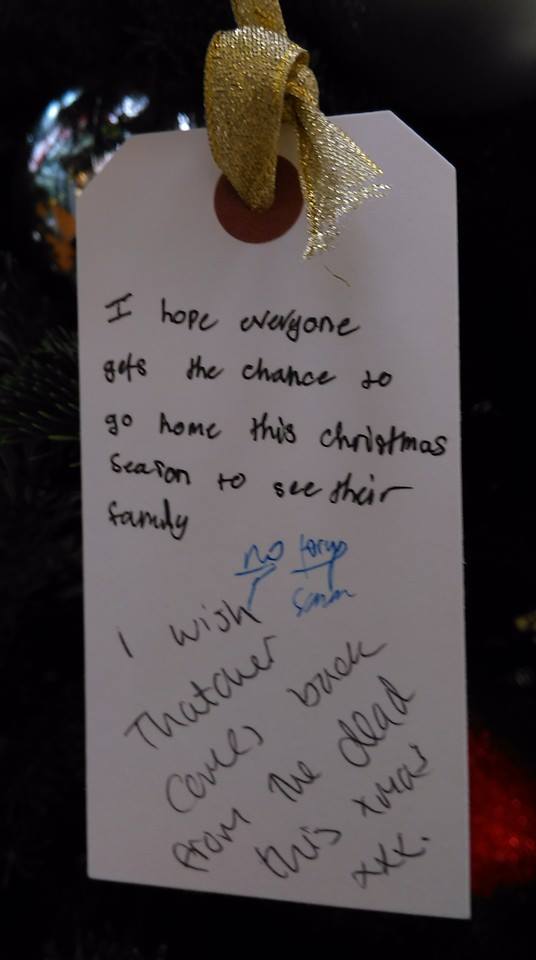 I hope everyone
gets the chance to
go home this christmas
season to see their
family
no
I wish
Thatcher
comes back
from the dead
this xmas
xxx.